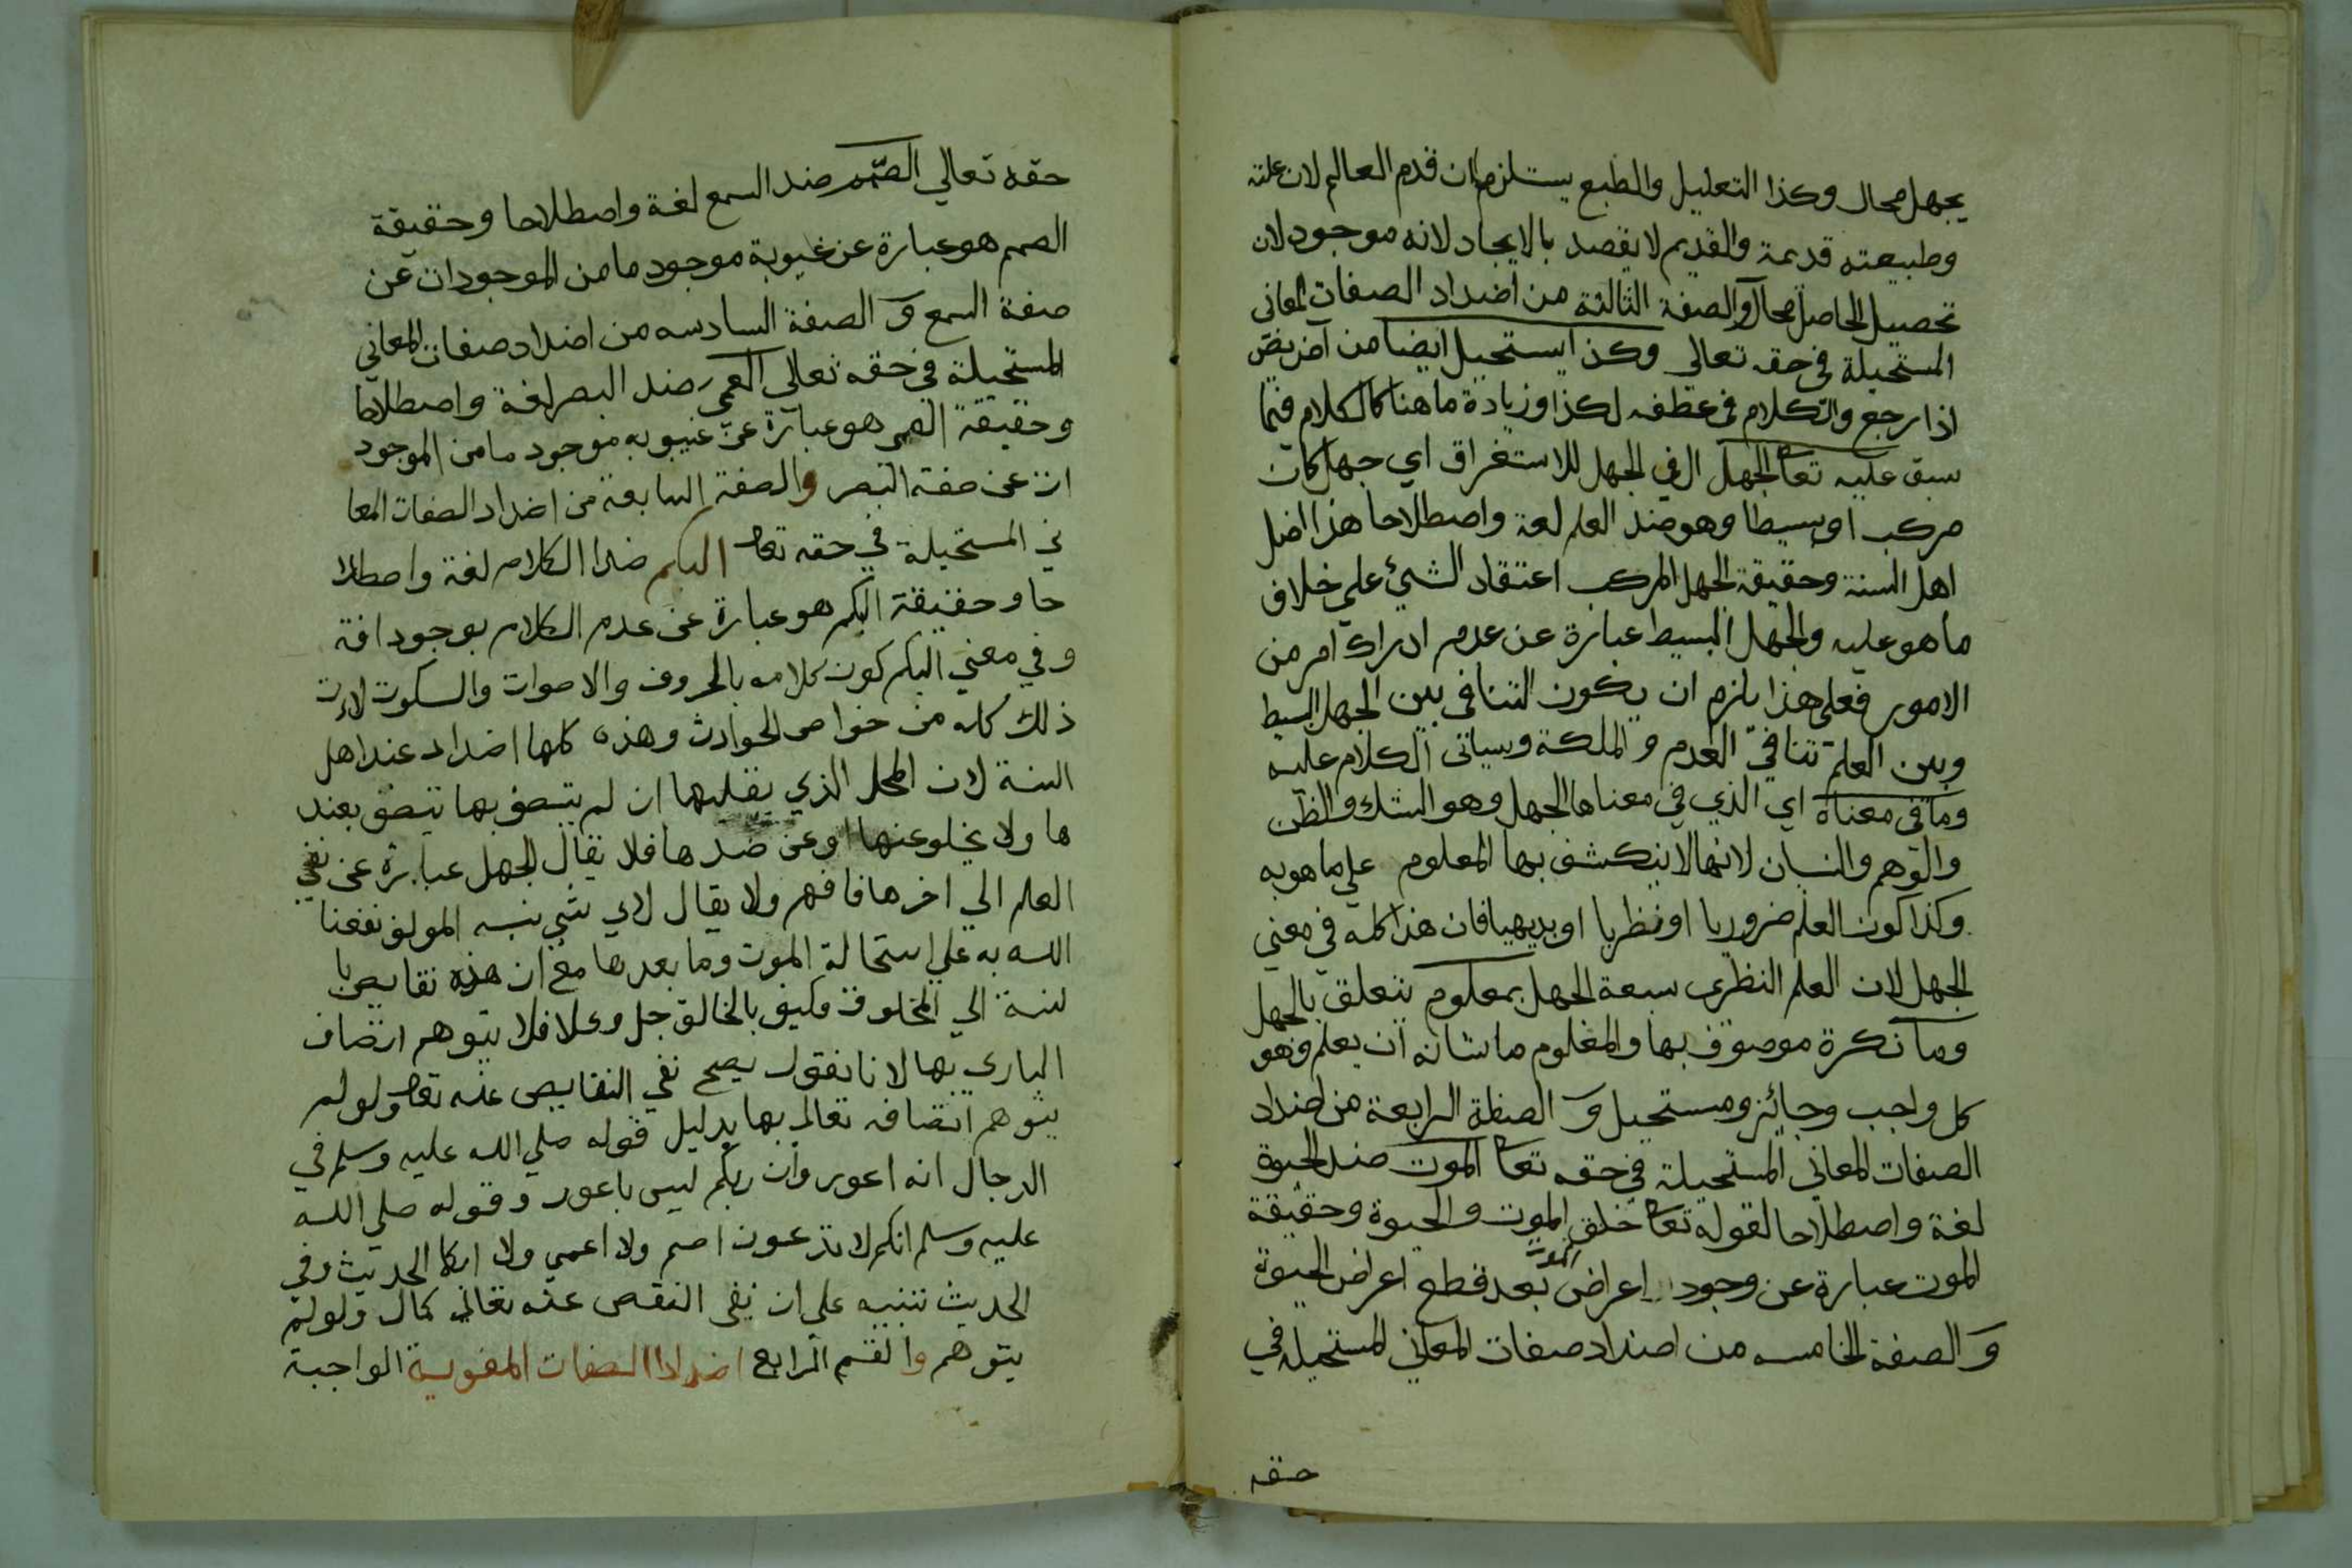 يجهل محال وكذا التعليل والطبع يستلزم ان قدم العالم لان علته
وطبيعته قديمة والقديم لا يقصد بالايجاد لانه موجود لان
تحصيل الحاصل محال والصفة الثالثة من اضداد الصفات المعاني
المستحيلة في حقه تعالى وكذا يستحيل ايضا من آض يئض
اذا رجع والكلام في عطفه لكذا وزيادة ما هنا كالكلام فيما
سبق عليه تعا الجهل ال في الجهل للاستغراق اي جهل كان
مركب او بسيطا وهو ضد العلم لغة واصطلاحا هذا اصل
اهل السنة وحقيقة الجهل المركب اعتقاد الشيء علي خلاف
ما هو عليه والجهل البسيط عبارة عن عدم ادراك امر من
الامور فعلى هذا يلزم ان يكون التنافي بين الجهل البسيط
وبين العلم تنافي العدم والملكة وسياتي الكلام عليه
وما في معناه اي الذي في معناها الجهل وهو الشك والظن
والوهم والنسيان لانها لا ينكشف بها المعلوم علي ما هو به
وكذا كون العلم ضروريا او نظريا او بديهيا فان هذا كله في معني
الجهل لان العلم النظري سبعة الجهل بمعلوم يتعلق بالجهل
وما نكرة موصوف بها والمعلوم ما شانه ان يعلم وهو
كل واجب وجايز ومستحيل و الصفة الرابعة من اضداد
الصفات المعاني المستحيلة في حقه تعا الموت ضد الحيوة
لغة واصطلاحا لقوله تعا خلق الموت والحيوة وحقيقة
الموت عبارة عن وجود اعراض الموت بعد قطع اعراض الحيوة
و الصفة الخامسه من اضداد صفات المعاني المستحيلة في
حقه
حقه تعالي الصمم ضد السمع لغة واصطلاحا وحقيقة
الصمم هو عبارة عن غيوبة موجود ما من الموجودات عن
صفة السمع و الصفة السادسه من اضداد صفات المعاني
المستحيلة في حقه تعالى العمى ضد البصر لغة واصطلاحا
وحقيقة العمى هو عبارة عن غيبوبه موجود ما من الموجود
ات عن صفة البصر والصفة السابعة من اضداد الصفات المعا
ني المستحيلة في حقه تعا البكم ضد الكلام لغة واصطلا
حا وحقيقة البكم هو عبارة عن عدم الكلام بوجود افة
وفي معني البكم كون كلامه بالحروف والاصوات والسكوت لان
ذلك كله من خواص الحوادث وهذه كلها اضداد عند اهل
السنة لان المحل الذي يقبلها ان لم يتصف بها يتصف بضد
ها ولا يخلو عنها او عن ضدها فلا يقال الجهل عبارة عن نفي
العلم الي اخرها فافهم ولا يقال لاي شي نبه المولف نفعنا
الله به علي استحالة الموت وما بعدها مع ان هذه نقايص با
لنسبة الي المخلوق وكيف بالخالق جل وعلا فلا يتوهم اتصاف
الباري بها لانا نقول يصح نفي النقايص عنه تعا ولو لم
يتوهم اتصافه تعالى بها بدليل قوله صلي الله عليه وسلم في
الدجال انه اعور وان ربكم ليس باعور وقوله صلي الله
عليه وسلم انكم لا تدعون اصم ولا اعمي ولا ابكا الحديث وفي
الحديث تنبيه على ان نفي النقص عنه تعالى كمال ولو لم
يتوهم والقسم الرابع اضداد الصفات المعنوية الواجبة